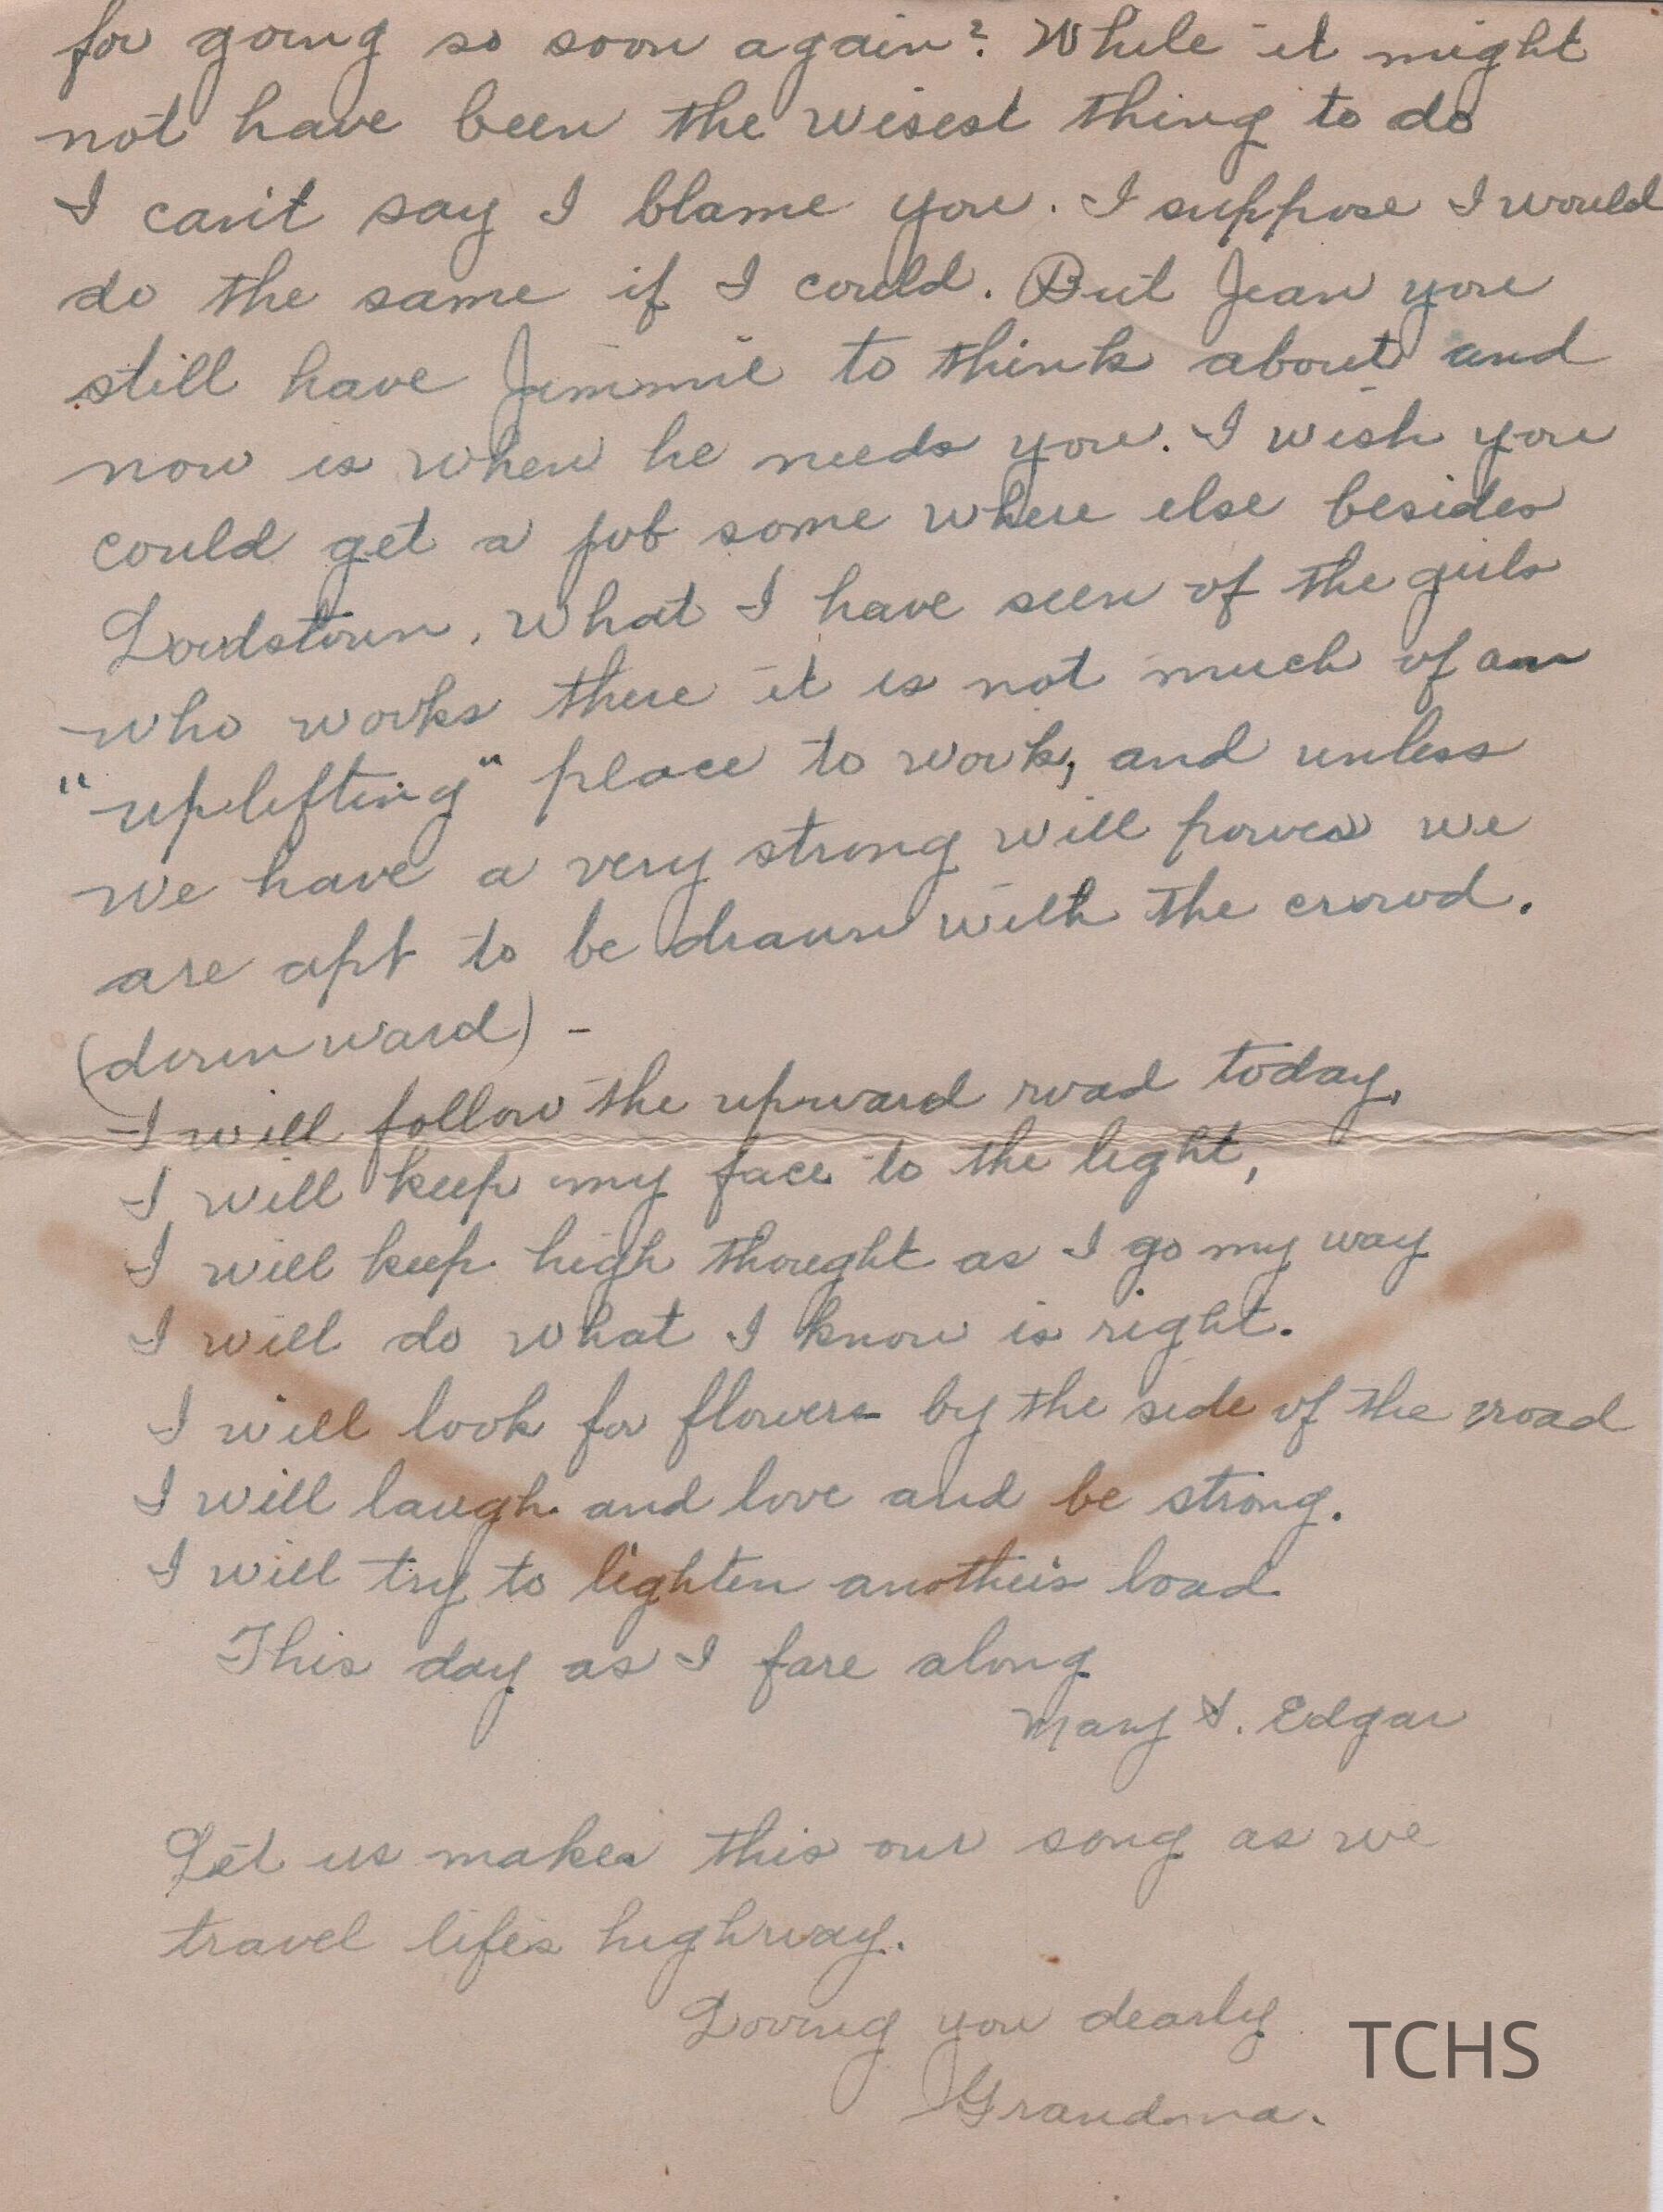 for going so soon again? While it might
not have been the wisest thing to do
I can't say I blame you. I suppose I would
do the same if I could. But Jean you
still have Jimmie to think about and
now is when he needs you. I wish you
could get a job some where else besides
Lordstown. What I have seen of the girls
who works there it is not much of an
"uplifting" place to work, and unless
we have a very strong will power we
are apt to be drawn with the crowd.
(downward) -
I will follow the upward road today,
I will keep my face to the light,
I will keep high thought as I go my way
I will do what I know is right.
I will look for flowers by the side of the road
I will laugh and love and be strong.
I will try to lighten another's load
This day as I fare along
Mary S. Edgar
Let us make this our song as we
travel life's highway.
Loving you dearly
TCHS
Grandma.